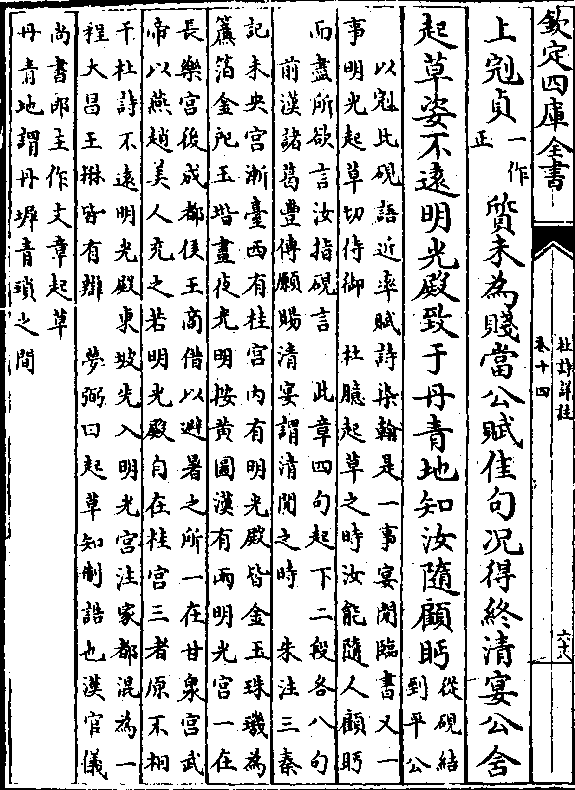 欽定四庫全書
杜詩詳註
卷十四
六十八
上剜貞一作正質未為賤當公賦佳句况得終清宴公含
起草姿不遠明光殿致于丹青地知汝隨顧盼從硯結到平公
以剜比硯語近率賦詩染翰是一事宴閒臨書又一
事明光起草切侍御　杜臆起草之時汝能隨人顧盼
而盡所欲言汝指硯言　此章四句起下二段各八句
前漢諸葛豐傳願賜清宴謂清閒之時　朱注三秦
記未央宫漸臺西有桂宫内有明光殿皆金玉珠璣為
簾箔金戺玉堦晝夜光明按黄圖漢有兩明光宫一在
長樂宫後成都侯王商借以避暑之所一在甘泉宫武
帝以燕趙美人充之若明光殿自在桂宫三者原不相
干杜詩不遠明光殿東坡先入明光宫注家都混為一
程大昌王楙皆有辯　夢弼曰起草知制誥也漢官儀
尚書郎主作文章起草
丹青地謂丹墀青瑣之間